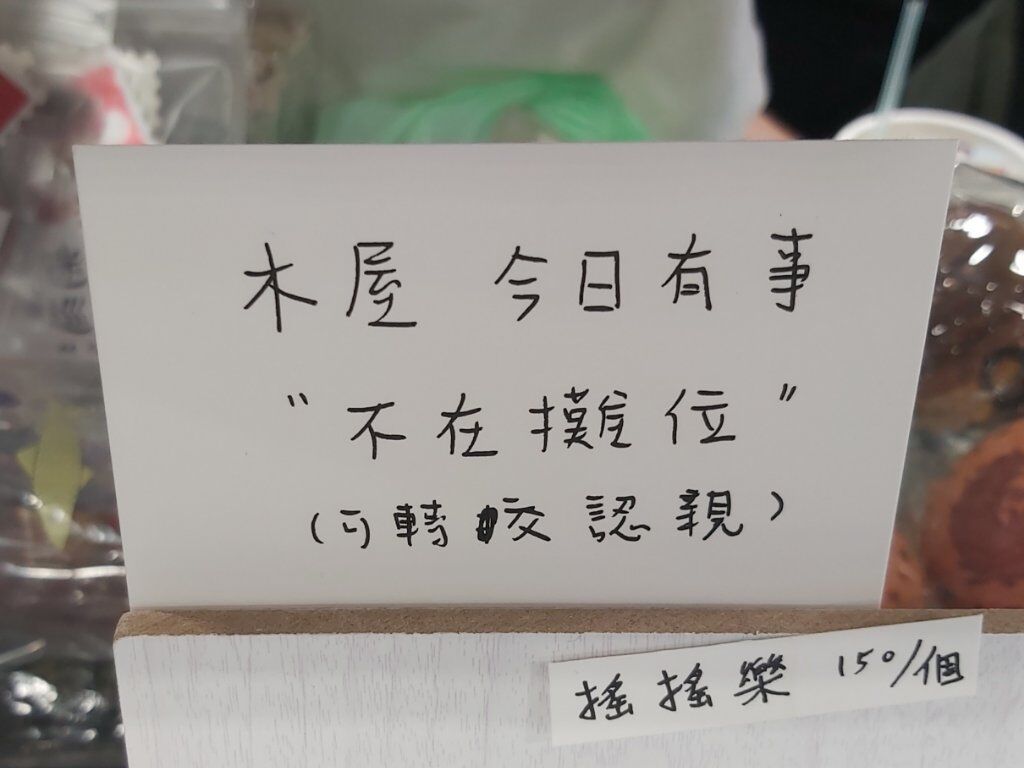 木屋 今日有事
"不在攤位"
(可轉交認親)
搖搖樂 150/個